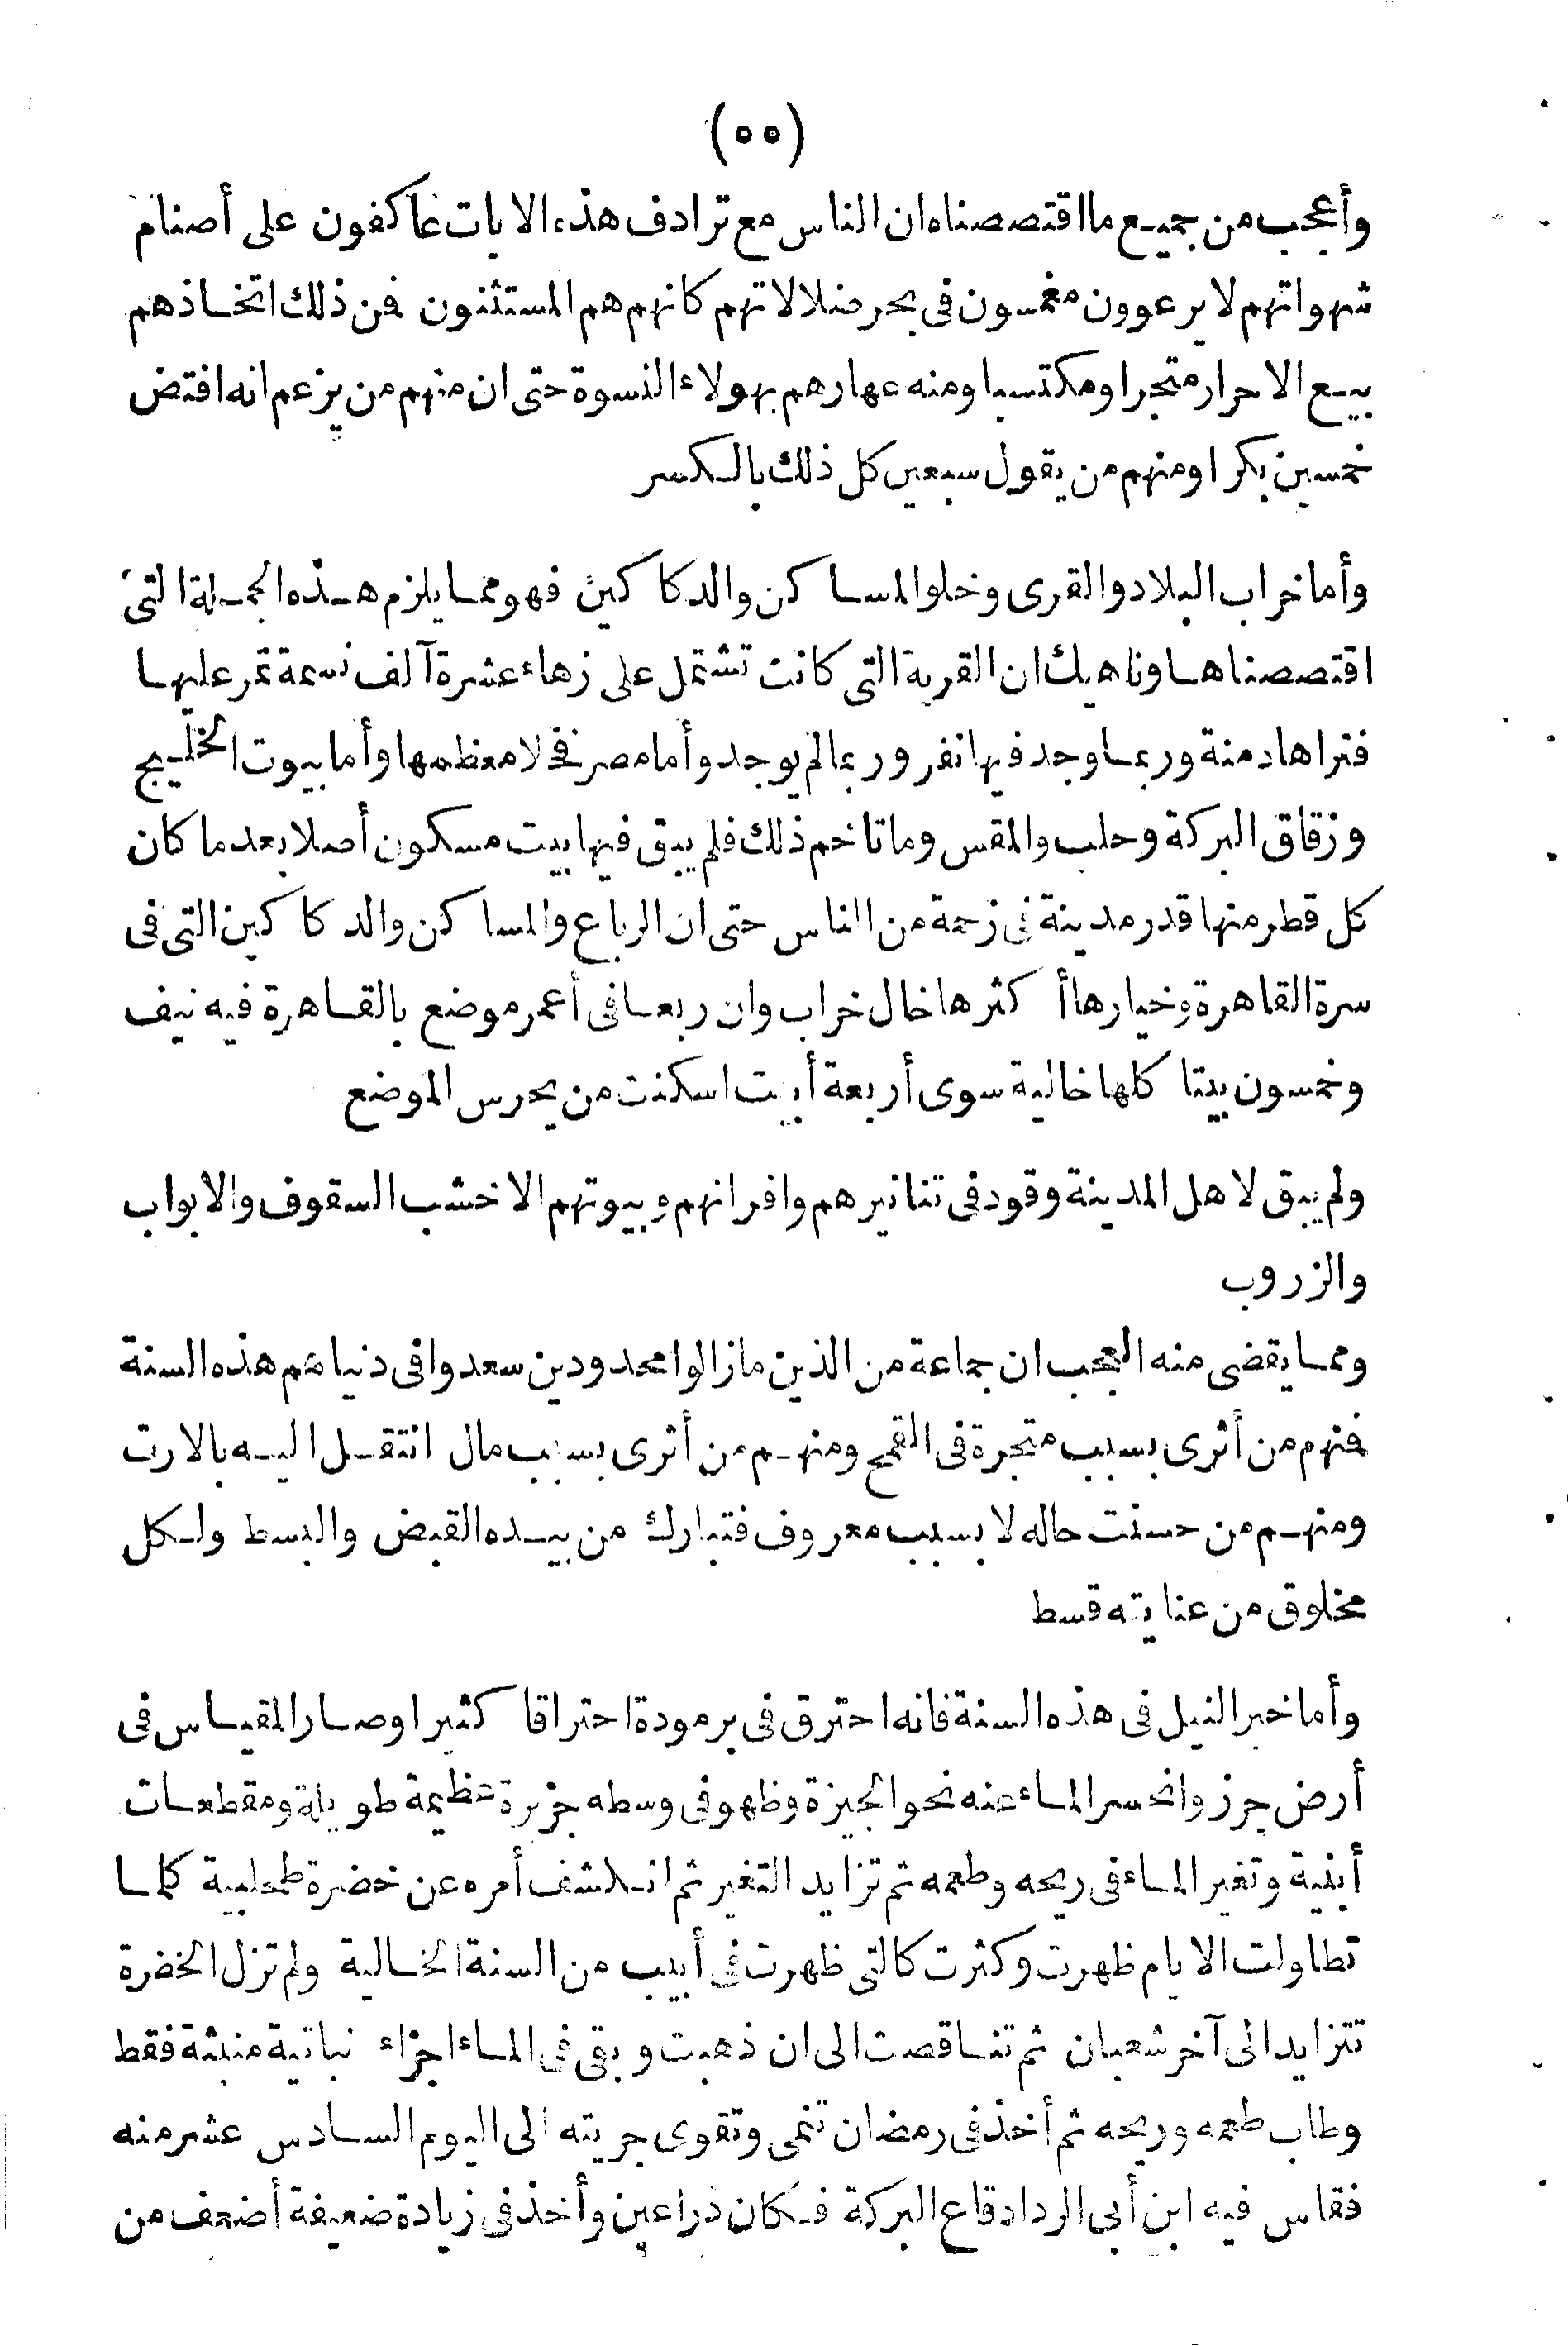 (٥٥)
وأعجب من جميع ما اقتصصناه ان الناس مع ترادف هذه الايات عاكفون على أصنام
شهواتهم لا يرعوون مغمسون فى بحر ضلالاتهم كانهم هم المستثنون فمن ذلك اتخاذهم
بيع الاحرار متجرا ومكتسبا ومنه عهارهم بهولاء النسوة حتى ان منهم من يزعم انه افتض
خمسين بكرا ومنهم من يقول سبعين كل ذلك بالكسر
وأما خراب البلاد والقرى وخلو المساكن والدكاكين فهو مما يلزم هذه الجملة التى
اقتصصناها وناهيك ان القرية التى كانت تشتمل على زهاء عشرة آلف نسمة تمر عليها
فتراها دمنة وربما وجد فيها نفر وربما لم يوجد وأما مصر فخلا معظمها وأما بيوت الخليج
وزقاق البركة وحلب والمقس وما تاخم ذلك فلم يبق فيها بيت مسكون أصلا بعد ما كان
كل قطر منها قدر مدينة فى زحمة من الناس حتى ان الرباع والمساكن والدكاكين التى فى
سرة القاهرة وخيارها أكثرها خال خراب وان ربعا فى أعمر موضع بالقاهرة فيه نيف
وخمسون بيتا كلها خالية سوى أربعة أبيت اسكنت من يحرس الموضع
ولم يبق لاهل المدينة وقود فى تنانيرهم وافرانهم وبيوتهم الا خشب السقوف والابواب
والزروب
ومما يقضى منه العجب ان جماعة من الذين مازالوا محدودين سعدوا فى دنياهم هذه السنة
فمنهم من أثرى بسبب متجرة فى القمح ومنهم من أثرى بسبب مال انتقل اليه بالارث
ومنهم من حسنت حاله لا بسبب معروف فتبارك من بيده القبض والبسط ولكل
مخلوق من عنايته قسط
وأما خبر النيل فى هذه السنة فانه احترق فى برمودة احتراقا كثيرا وصار المقياس فى
أرض جرز وانحسر الماء عنه نحو الجيزة وظهو فى وسطه جزيرة عظيمة طويلة ومقطعات
أبنية وتغير الماء فى ريحه وطعمه ثم تزايد التغير ثم انكشف أمره عن خضرة طحلبية كلما
تطاولت الايام ظهرت وكثرت كالتى ظهرت فى أبيب من السنة الخالية ولم تزل الخضرة
تتزايد الى آخر شعبان ثم تناقصت الى ان ذهبت وبقى فى الماء اجزاء نباتية منبثة فقط
وطاب طعمه وريحه ثم أخذ فى رمضان تنمى وتقوى جريته الى اليوم السادس عشر منه
فقاس فيه ابن أبى الرداد قاع البركة فكان ذراعين وأخذ فى زيادة ضعيفة أضعف من